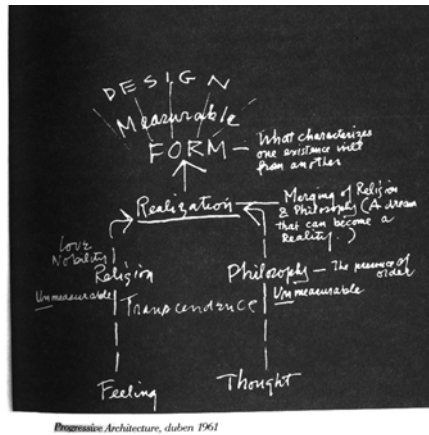 DESIGN
Measurable
FORM — What characterizes
one existence will
from another
Realization — Merging of Religion
& Philosophy (A dream
that can become a
Reality.)
Love
Nobility
Religion
Philosophy — The presence of
order
Unmeasurable
Unmeasurable
Transcendence
Feeling
Thought
Progressive Architecture, duben 1961